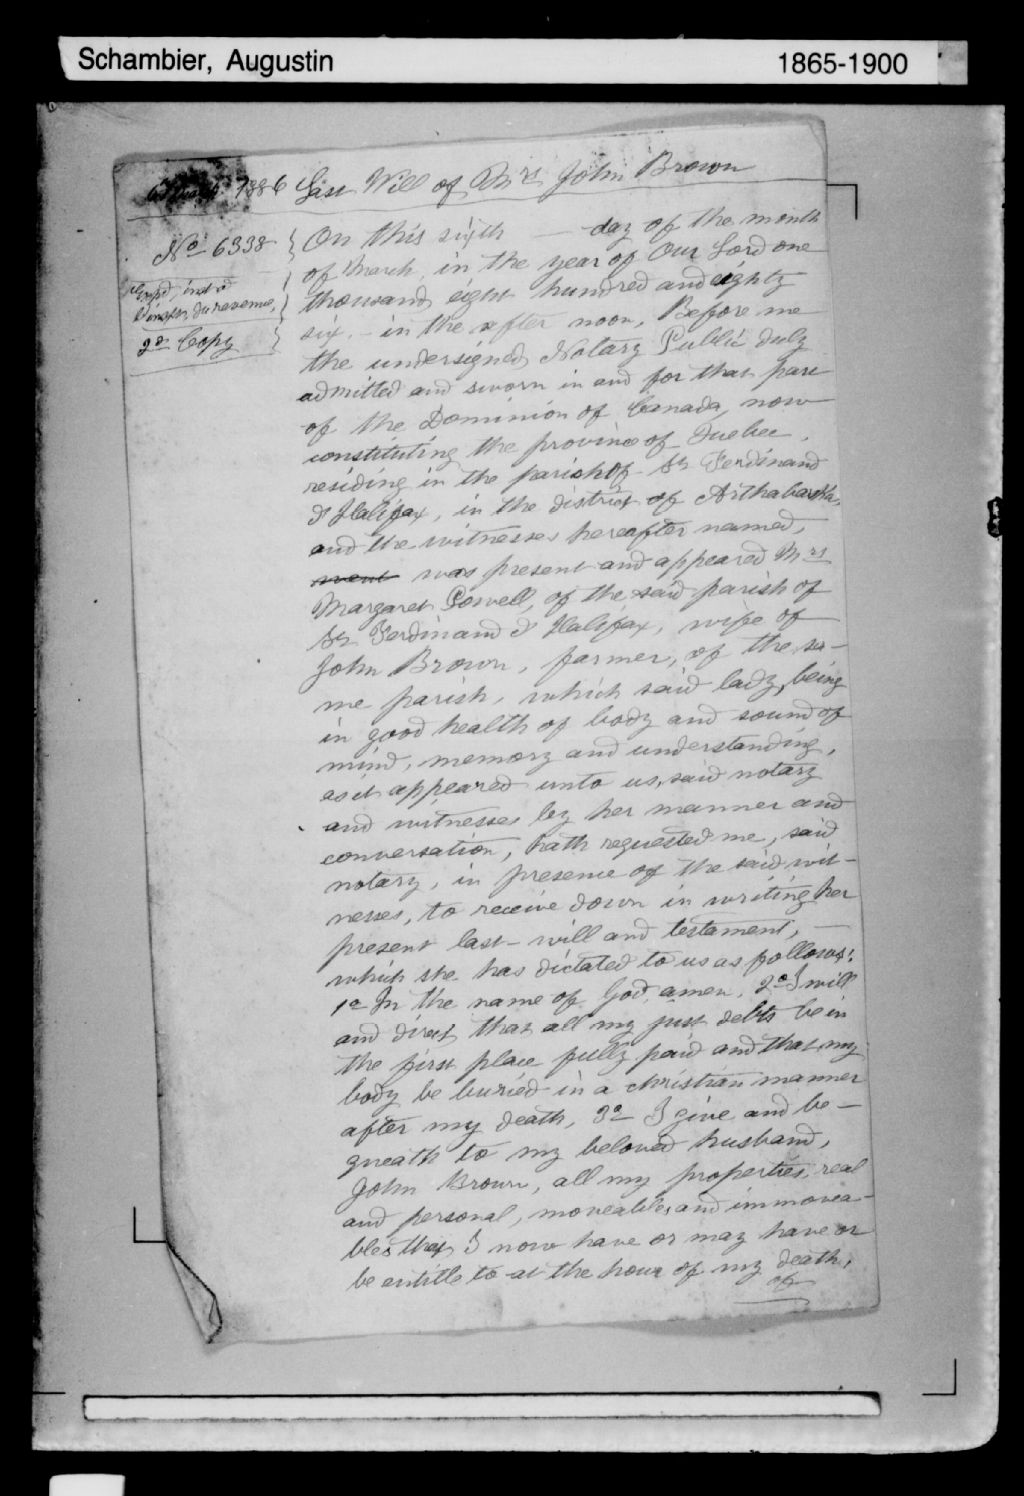 Schambier, Augustin 1865-1900
1886 Last Will of Mrs John Brown
No 6338
2d Copy
On this sixth — day of the month
of March, in the year of Our Lord one
thousand eight hundred and eighty
six, - in the after noon, Before me
the undersigned Notary Public duly
admitted and sworn in and for that part
of the Dominion of Canada, now
constituting the province of Quebec,
residing in the parish of St Ferdinand
d'Halifax, in the district of Arthabaska,
and the witnesses hereafter named,
was present and appeared Mrs
Margaret Powell, of the said parish of
St Ferdinand d'Halifax, wife of
John Brown, farmer, of the sa-
me parish, which said lady, being
in good health of body and sound of
mind, memory and understanding,
as it appeared unto us, said notary
and witnesses by her manner and
conversation, hath requested me, said
notary, in presence of the said wit-
nesses, to receive down in writing her
present last-will and testament, —
which she has dictated to us as follows:
1o In the name of God, amen. 2o I will
and direct that all my just debts be in
the first place fully paid and that my
body be buried in a christian manner
after my death, 3o I give and be-
queath to my beloved husband,
John Brown, all my properties, real
and personal, moveables and immovea-
bles that I now have or may have or
be entitle to at the hour of my death,
of